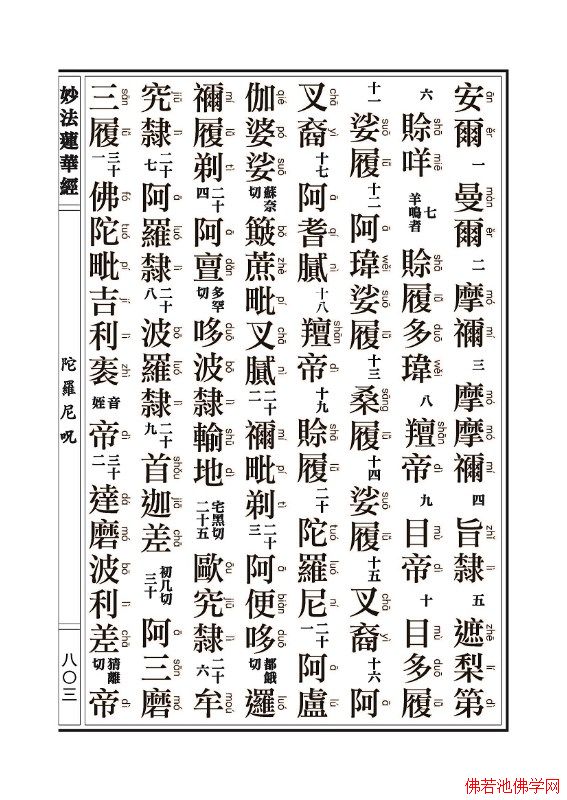 安爾一曼爾二摩禰三摩摩禰四旨隸五遮梨第
六賒咩七羊鳴者賒履多瑋八羶帝九目帝十目多履
十一娑履十二阿瑋娑履十三桑履十四娑履十五叉裔十六阿
叉裔十七阿耆膩十八羶帝十九賒履二十陀羅尼二十一阿盧
伽婆娑蘇奈切簸蔗毗叉膩二十二禰毗剃二十三阿便哆都餓切邏
禰履剃二十四阿亶多罕切哆波隸輸地宅黑切二十五歐究隸二十六牟
究隸二十七阿羅隸二十八波羅隸二十九首迦差初几切三十阿三磨
三履三十一佛陀毗吉利袠音姪帝三十二達磨波利差猜離切帝
妙法蓮華經
陀羅尼呪
八〇三
佛若池佛学网